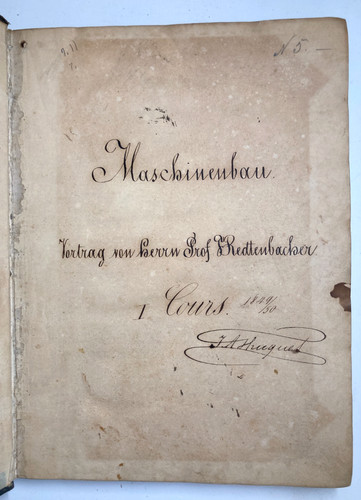 N 5. —
Maschinenbau.
Vortrag von Herrn Prof F Redtenbacher
1 Cours. 1849/50